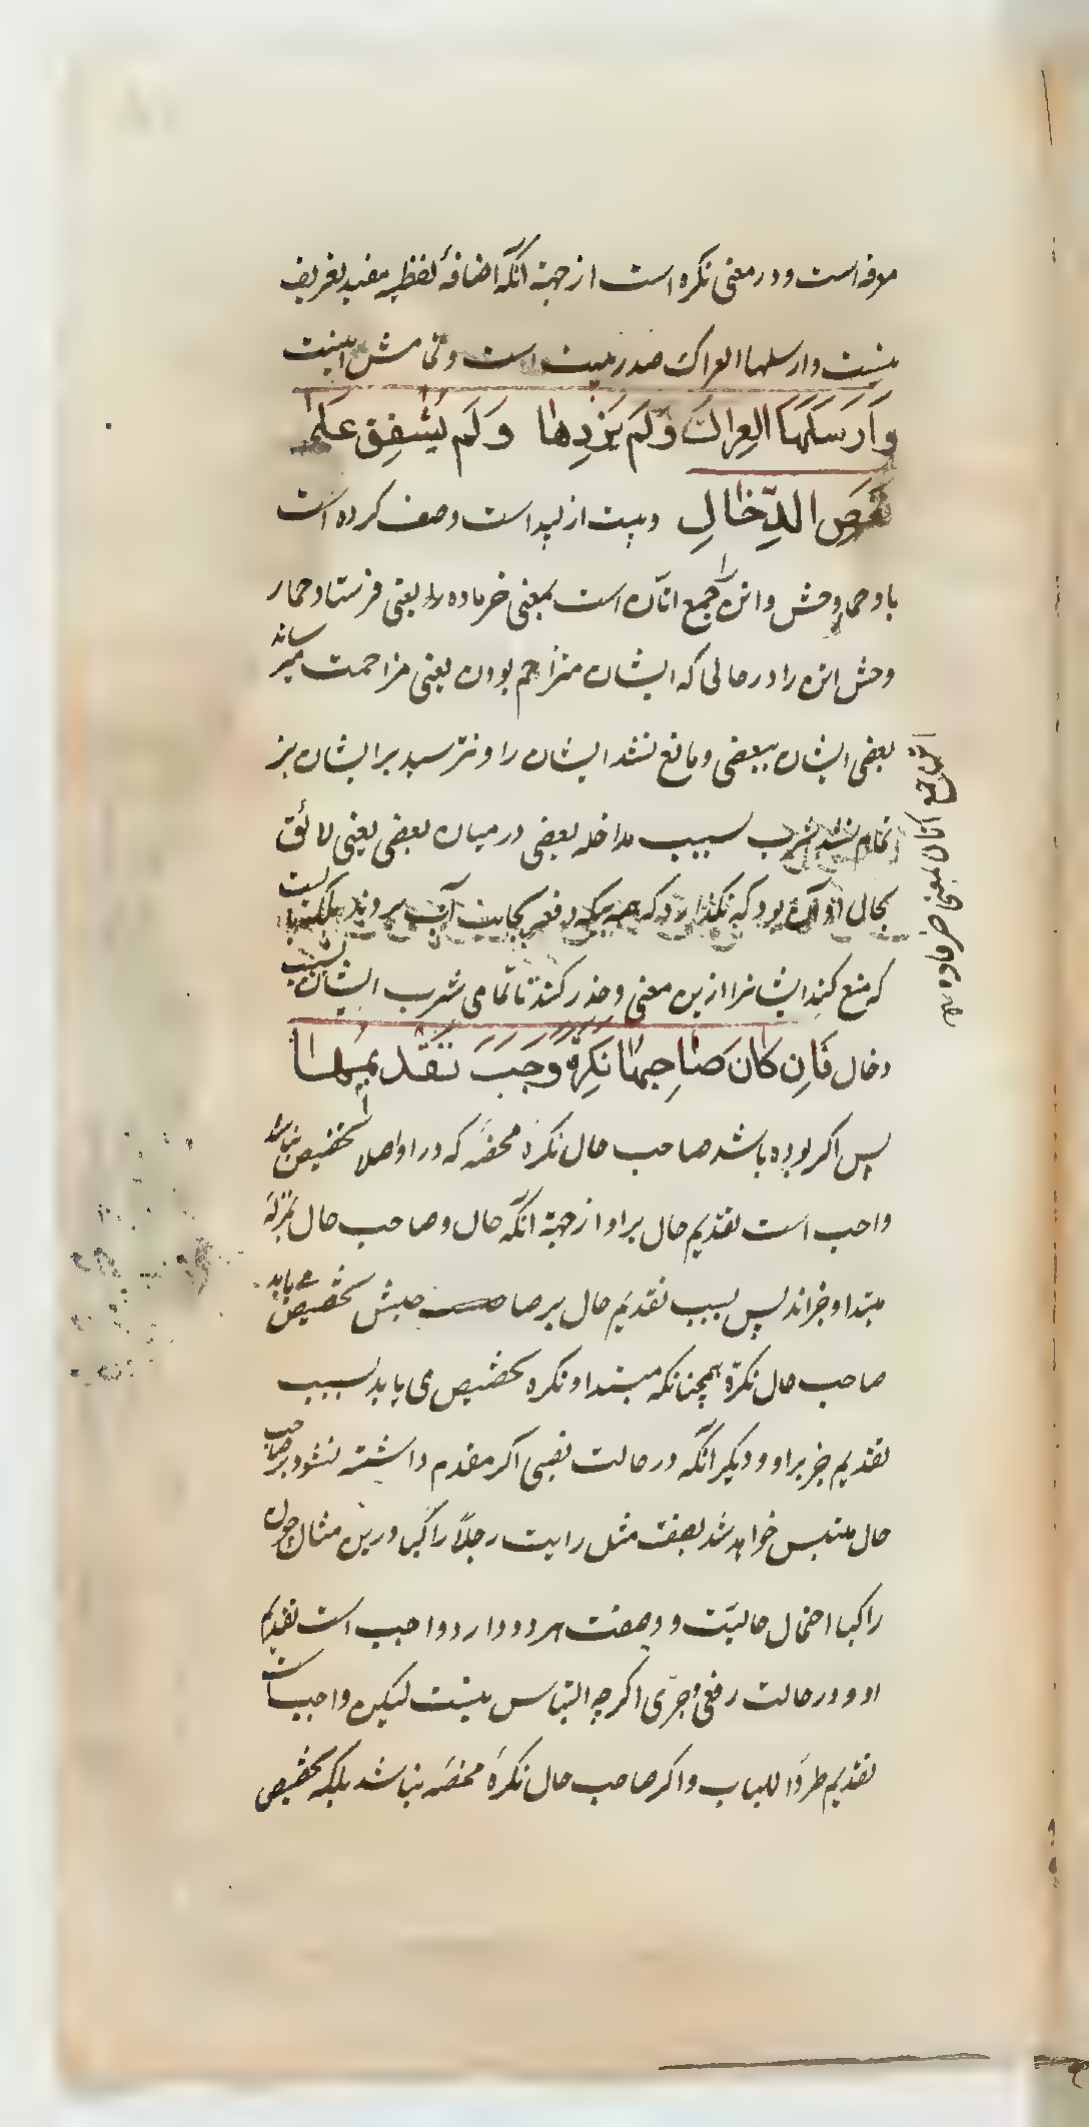 معرفه است و در معنی نکره است از جهة آنکه اضافهٔ لفظیه مفید تعریف
نیست و ارسلها العراک صدر بیت است و تمامش اینست
وَاَرسَلَهَا العِراكَ وَلَم يَزُدها وَلَم يُشفِق عَلى
نَغَصِ الدِّخالِ و بیت از لبید است وصف کرده است
باو حمار وحش و اتن را جمع اتان است بمعنی خر ماده را یعنی فرستاد حمار
وحش اتن را در حالی که ایشان متزاحم بودن یعنی مزاحمت میرساند
بعضی ایشان ببعضی و مانع نشد ایشان را و نترسید بر ایشان بر
تمام نشد شرب بسبب مداخله بعضی در میان بعضی یعنی لائق
بحال او آن بود که نگذارد که همه یکدفعه بجانب آب بروند بلکه
که منع کند ایشانرا ازین معنی و حذر کند تا تمامی شرب ایشان بسبب
دخال فَاِن كانَ صاحِبُها نَكِرةً وَجَبَ تَقديمُها
پس اکر بوده باشد صاحب حال نکرهٔ محضه که در او اصلا تخصیص نباشد
واجب است تقدیم حال بر او از جهة آنکه حال و صاحب حال بمنزله
مبتدا و خبراند پس بسبب تقدیم حال بر صاحبش تخصیص می یابد
صاحب حال نکرة همچنانکه مبتداء نکره تخصیص می یابد بسبب
تقدیم خبر بر او و دیکر آنکه در حالت نصبی اکر مقدم داشته نشود بر صاحب
حال ملتبس خواهد شد بصفت مثل رایت رجلاً راکبا درین مثال چون
راکبا احتمال حالیّت و وصفت هر دو دارد واجب است تقدیم
او و در حالت رفعی و جرّی اکرچه التباس نیست لیکن واجب است
تقدیم طردًا للباب و اکر صاحب حال نکرهٔ محضه نباشد بلکه تخصیص
اتن جمع اتان بمعنی خر ماده